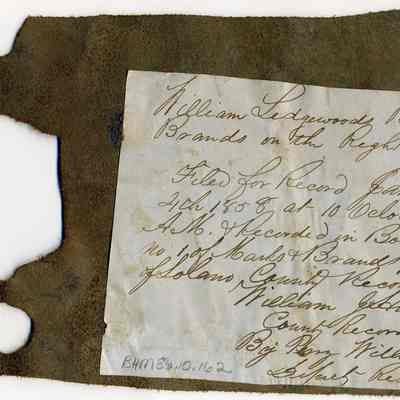 William Ledgewoods
Brands on the Right
Filed for Record Jan
4th 1858 at 10 Oclo
A.M. & Recorded in Bo
no. 1 of Marks & Brands
of Solano County Recor
William
County Recor
By
Wil
Re
BHM56.10.162